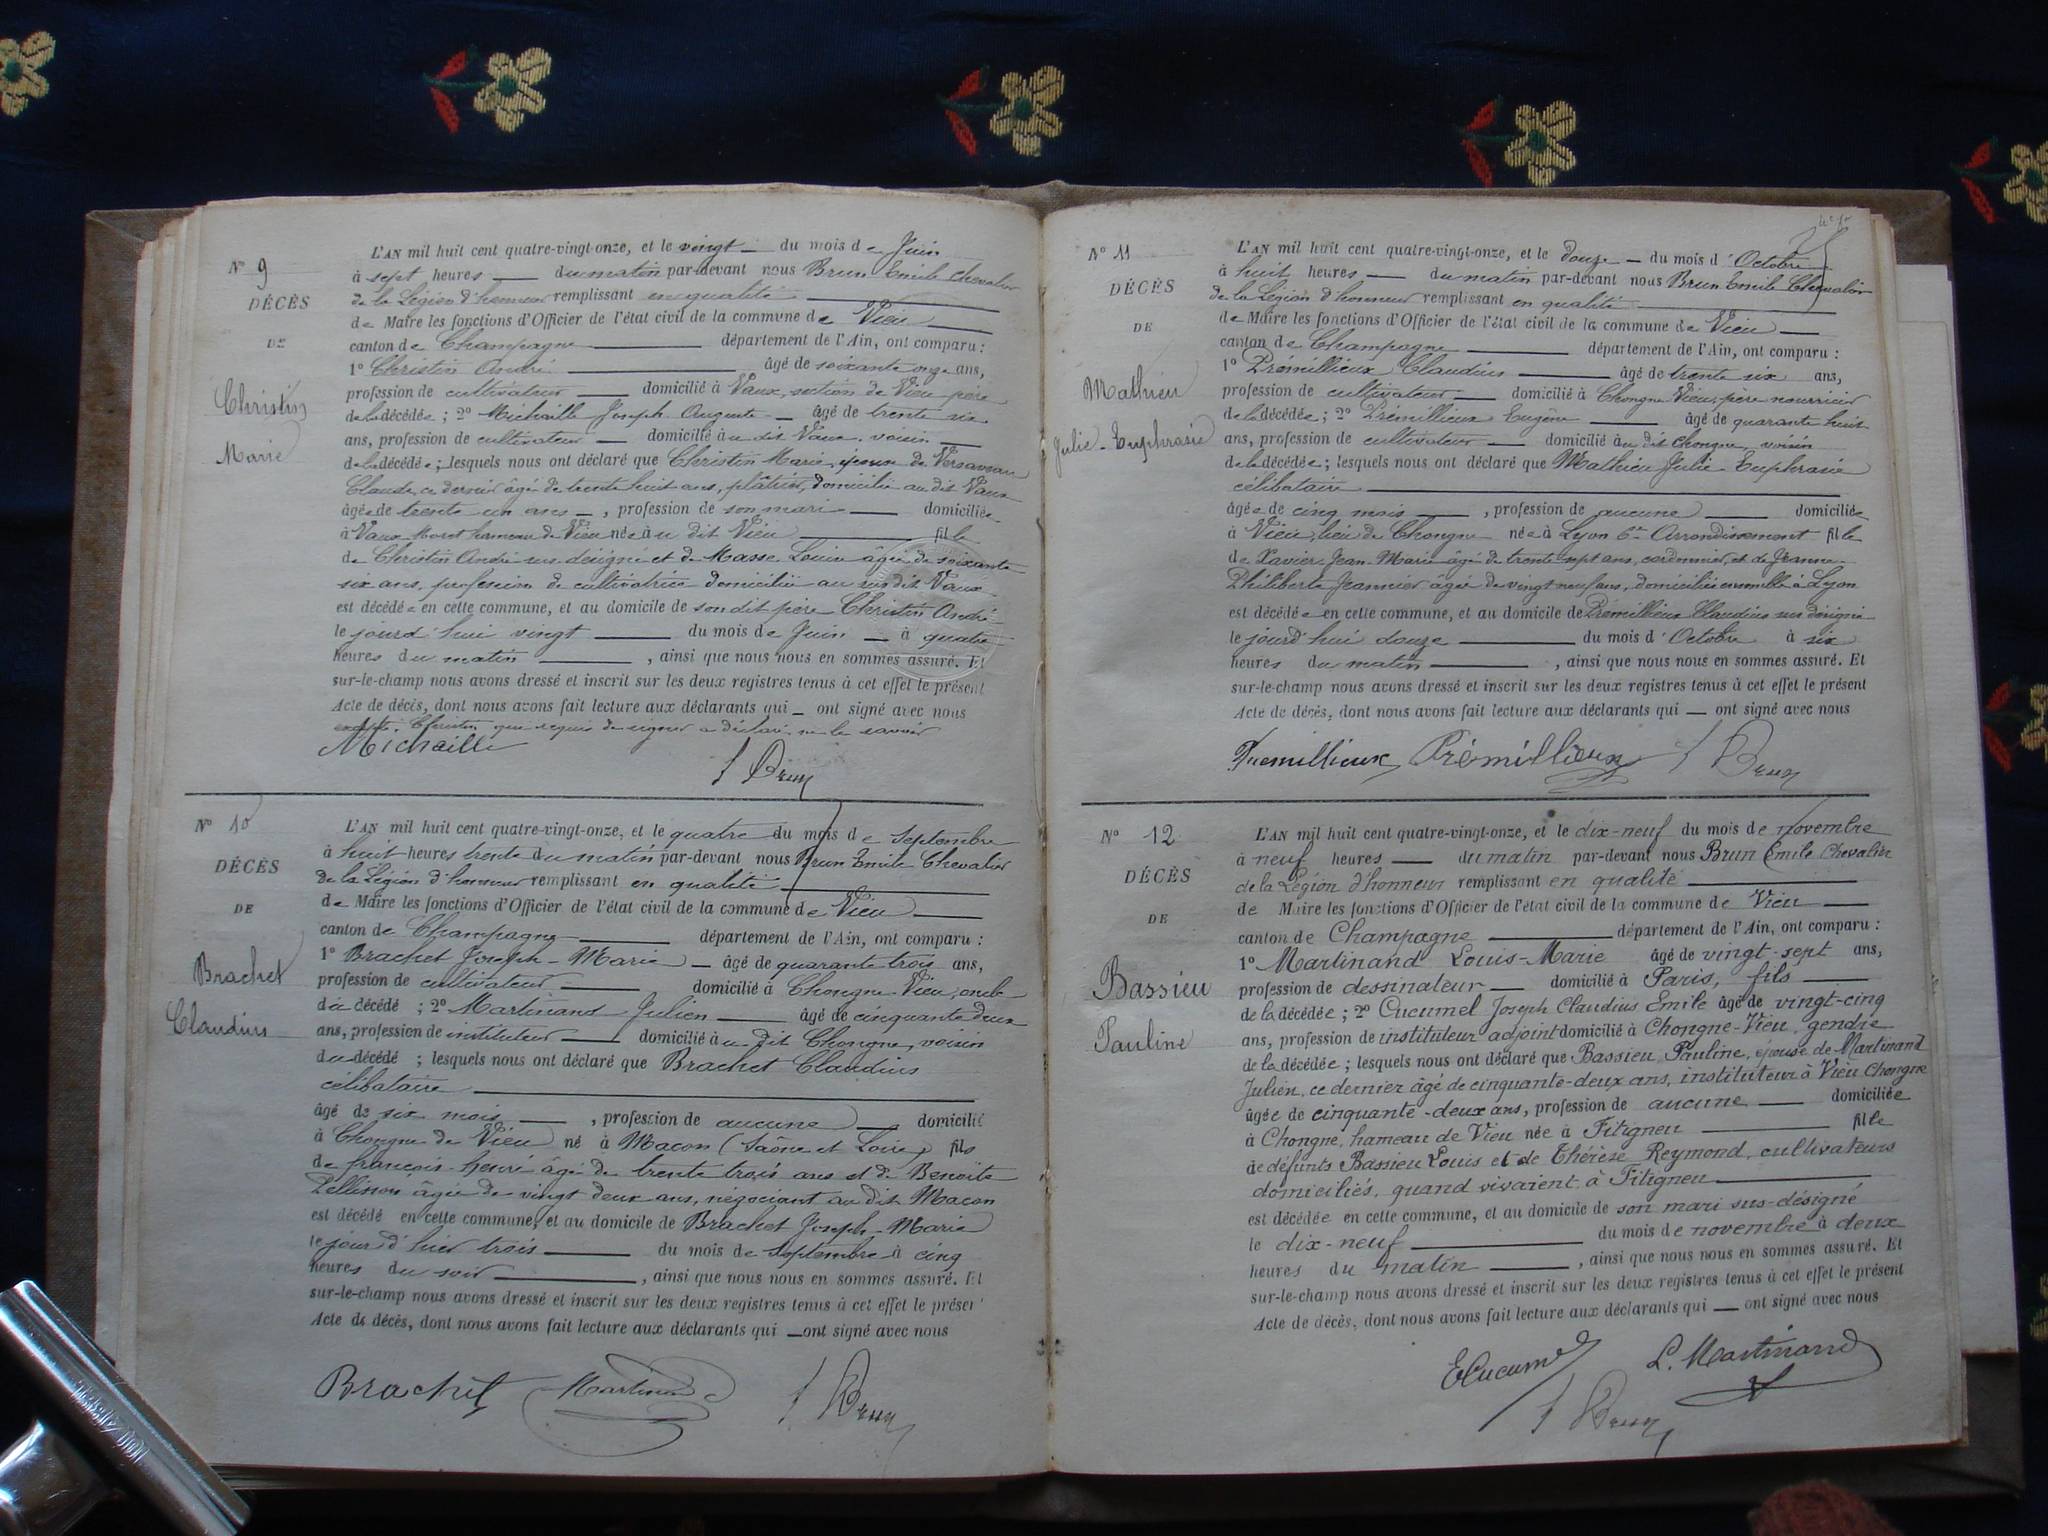 N° 9
DÉCÈS
DE
Christin
Marie
L'AN mil huit cent quatre-vingt-onze, et le vingt du mois de Juin
à sept heures du matin par-devant nous Brun Emile Chevalier
de la Légion d'honneur remplissant en qualité
de Maire les fonctions d'Officier de l'état civil de la commune de Vieu
canton de Champagne département de l'Ain, ont comparu :
1° Christin André âgé de soixante onze ans,
profession de cultivateur domicilié à Vaux, section de Vieu père
de la décédée ; 2° Michaille Joseph Auguste âgé de trente six
ans, profession de cultivateur domicilié au dit Vaux, voisin
de la décédée ; lesquels nous ont déclaré que Christin Marie, épouse de
Claude, ce dernier âgé de trente huit ans, plâtrier, domicilié au dit Vaux
âgée de trente un ans, profession de son mari domiciliée
à Vaux Moret hameau de Vieu née au dit Vieu fille
de Christin André sus désigné et de Masse Louise âgée de soixante
six ans, profession de cultivatrice domiciliée au sus dit Vaux
est décédée en cette commune, et au domicile de son dit père Christin André
le jourd'hui vingt du mois de Juin à quatre
heures du matin , ainsi que nous nous en sommes assuré. Et
sur-le-champ nous avons dressé et inscrit sur les deux registres tenus à cet effet le présent
Acte de décès, dont nous avons fait lecture aux déclarants qui ont signé avec nous
excepté Christin qui requis de signer a déclaré ne le savoir
Michaille
Brun
N° 10
DÉCÈS
DE
Brachet
Claudius
L'AN mil huit cent quatre-vingt-onze, et le quatre du mois de Septembre
à huit heures trente du matin par-devant nous Brun Emile Chevalier
de la Légion d'honneur remplissant en qualité
de Maire les fonctions d'Officier de l'état civil de la commune de Vieu
canton de Champagne département de l'Ain, ont comparu :
1° Brachet Joseph-Marie âgé de quarante trois ans,
profession de cultivateur domicilié à Chongne-Vieu, oncle
du décédé ; 2° Martinand Julien âgé de cinquante deux
ans, profession de instituteur domicilié au dit Chongne, voisin
du décédé ; lesquels nous ont déclaré que Brachet Claudius
célibataire
âgé de six mois , profession de aucune domicilié
à Chongne de Vieu né à Macon (Saône et Loire) fils
de françois-henri âgé de trente trois ans et de Benoite
Pellisson âgée de vingt deux ans, négociant au dit Macon
est décédé en cette commune, et au domicile de Brachet Joseph-Marie
le jour d'hier trois du mois de Septembre à cinq
heures du soir , ainsi que nous nous en sommes assuré. Et
sur-le-champ nous avons dressé et inscrit sur les deux registres tenus à cet effet le présen
Acte de décès, dont nous avons fait lecture aux déclarants qui ont signé avec nous
Brachet Martinand Brun
N° 11
DÉCÈS
DE
Mathieu
Julie-Euphrasie
L'AN mil huit cent quatre-vingt-onze, et le douze du mois d'Octobre
à huit heures du matin par-devant nous Brun Emile Chevalier
de la Légion d'honneur remplissant en qualité
de Maire les fonctions d'Officier de l'état civil de la commune de Vieu
canton de Champagne département de l'Ain, ont comparu :
1° Prémillieux Claudius âgé de trente six ans,
profession de cultivateur domicilié à Chongne Vieu, père nourricier
de la décédée ; 2° Prémillieux Eugène âgé de quarante huit
ans, profession de cultivateur domicilié au dit Chongne, voisin
de la décédée ; lesquels nous ont déclaré que Mathieu Julie-Euphrasie
célibataire
âgée de cinq mois , profession de aucune domiciliée
à Vieu, lieu de Chongne née à Lyon 6e Arrondissement fille
de Xavier Jean-Marie âgé de trente sept ans, cordonnier, et de Jeanne-
Philiberte Jeannier âgée de vingt neuf ans, domiciliés ensemble à Lyon
est décédée en cette commune, et au domicile de Prémillieux Claudius sus désigné
le jourd'hui douze du mois d'Octobre à six
heures du matin , ainsi que nous nous en sommes assuré. Et
sur-le-champ nous avons dressé et inscrit sur les deux registres tenus à cet effet le présent
Acte de décès, dont nous avons fait lecture aux déclarants qui ont signé avec nous
Premillieux Prémillieux Brun
N° 12
DÉCÈS
DE
Bassieu
Pauline
L'AN mil huit cent quatre-vingt-onze, et le dix-neuf du mois de novembre
à neuf heures du matin par-devant nous Brun Emile Chevalier
de la Légion d'honneur remplissant en qualité
de Maire les fonctions d'Officier de l'état civil de la commune de Vieu
canton de Champagne département de l'Ain, ont comparu :
1° Martinand Louis-Marie âgé de vingt-sept ans,
profession de dessinateur domicilié à Paris, fils
de la décédée ; 2° Cucumel Joseph Claudius Emile âgé de vingt-cinq
ans, profession de instituteur adjoint domicilié à Chongne-Vieu, gendre
de la décédée ; lesquels nous ont déclaré que Bassieu Pauline, épouse de Martinand
Julien, ce dernier âgé de cinquante-deux ans, instituteur à Vieu Chongne
âgée de cinquante-deux ans, profession de aucune domiciliée
à Chongne, hameau de Vieu née à Fitigneu fille
de défunts Bassieu Louis et de Thérèse Reymond, cultivateurs
domiciliés, quand vivaient à Fitigneu
est décédée en cette commune, et au domicile de son mari sus-désigné
le dix-neuf du mois de novembre à deux
heures du matin , ainsi que nous nous en sommes assuré. Et
sur-le-champ nous avons dressé et inscrit sur les deux registres tenus à cet effet le présent
Acte de décès, dont nous avons fait lecture aux déclarants qui ont signé avec nous
ECucumel L. Martinand
Brun